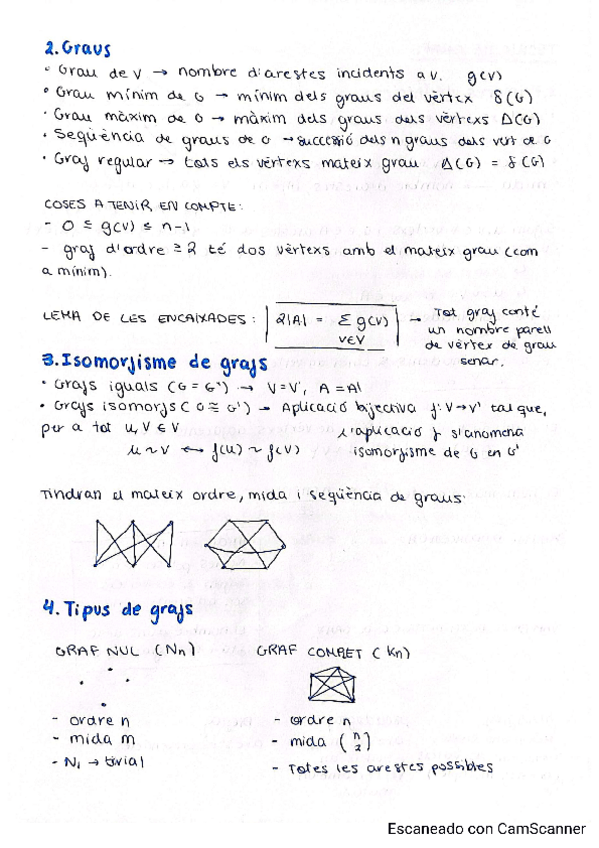 2. Graus
• Grau de v → nombre d'arestes incidents a v. g(v)
• Grau mínim de G → mínim dels graus del vèrtex δ(G)
• Grau màxim de G → màxim dels graus dels vèrtexs Δ(G)
• Seqüència de graus de G → successió dels n graus dels vert de G
• Graf regular → tots els vèrtexs mateix grau Δ(G) = δ(G)
COSES A TENIR EN COMPTE:
- 0 ≤ g(v) ≤ n-1
- graf d'ordre ≥ 2 té dos vèrtexs amb el mateix grau (com
a mínim).
LEMA DE LES ENCAIXADES: 2|A| = Σ g(v) → Tot graf conté
v∈V un nombre parell
de vèrtex de grau
senar.
3. Isomorfisme de grafs
• Grafs iguals (G = G') → V=V', A = A'
• Grafs isomorfs (G ≅ G') → Aplicació bijectiva f: V→V' tal que,
per a tot u, v ∈ V L'aplicació f s'anomena
u ~ v ↔ f(u) ~ f(v) isomorfisme de G en G'
Tindran el mateix ordre, mida i seqüència de graus.
4. Tipus de grafs
GRAF NUL (Nn) GRAF COMPLET (Kn)
- ordre n - ordre n
- mida m - mida (n 2)
- N1 → trivial - Totes les arestes possibles
Escaneado con CamScanner